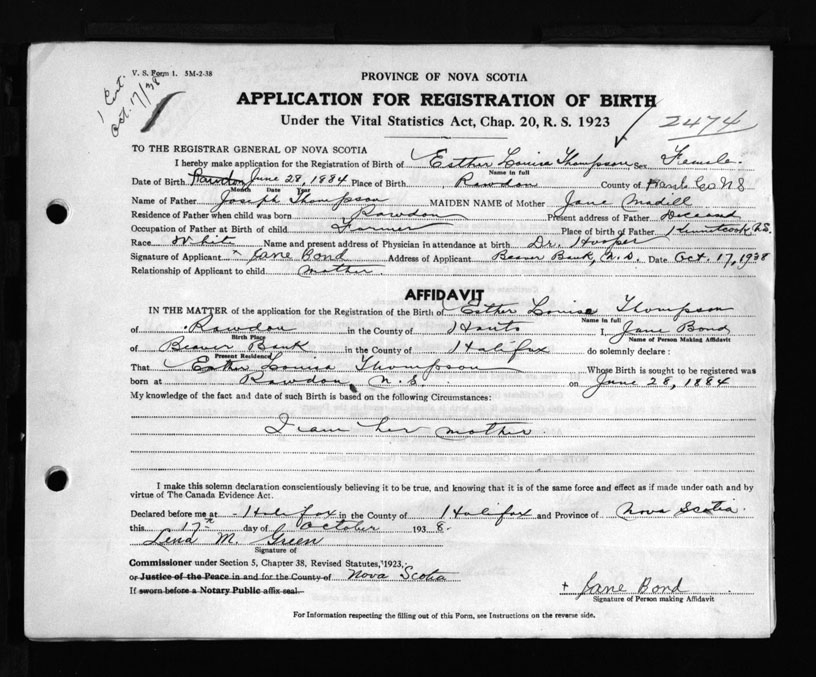 1 Cert.
Oct. 17/38
V. S. Form 1. 5M-2-38
PROVINCE OF NOVA SCOTIA
APPLICATION FOR REGISTRATION OF BIRTH
Under the Vital Statistics Act, Chap. 20, R. S. 1923
2474
TO THE REGISTRAR GENERAL OF NOVA SCOTIA
I hereby make application for the Registration of Birth of Esther Louisa Thompson Sex Female
Name in full
Date of Birth Rawdon June 28, 1884 Place of Birth Rawdon County of Hants Co N S
Month Date Year
Name of Father Joseph Thompson MAIDEN NAME of Mother Jane Madill
Residence of Father when child was born Rawdon Present address of Father Deceased
Occupation of Father at Birth of child Farmer Place of birth of Father Kennetcook N.S.
Race White Name and present address of Physician in attendance at birth Dr. Hooper
Signature of Applicant Jane Bond Address of Applicant Beaver Bank, N.S. Date Oct. 17, 1938
Relationship of Applicant to child mother.
AFFIDAVIT
IN THE MATTER of the application for the Registration of the Birth of Esther Louise Thompson
Name in full
of Rawdon in the County of Hants I, Jane Bond
Birth Place Name of Person Making Affidavit
of Beaver Bank in the County of Halifax do solemnly declare :
Present Residence
That Esther Louisa Thompson Whose Birth is sought to be registered was
born at Rawdon, N.S. on June 28, 1884
My knowledge of the fact and date of such Birth is based on the following Circumstances:
I am her mother.
I make this solemn declaration conscientiously believing it to be true, and knowing that it is of the same force and effect as if made under oath and by
virtue of The Canada Evidence Act.
Declared before me at Halifax in the County of Halifax and Province of Nova Scotia.
this 17th day of October 193 8.
Lena M. Green
Signature of
Commissioner under Section 5, Chapter 38, Revised Statutes, 1923,
or Justice of the Peace in and for the County of Nova Scotia
If sworn before a Notary Public affix seal.
+ Jane Bond
Signature of Person making Affidavit
For Information respecting the filling out of this Form, see Instructions on the reverse side.